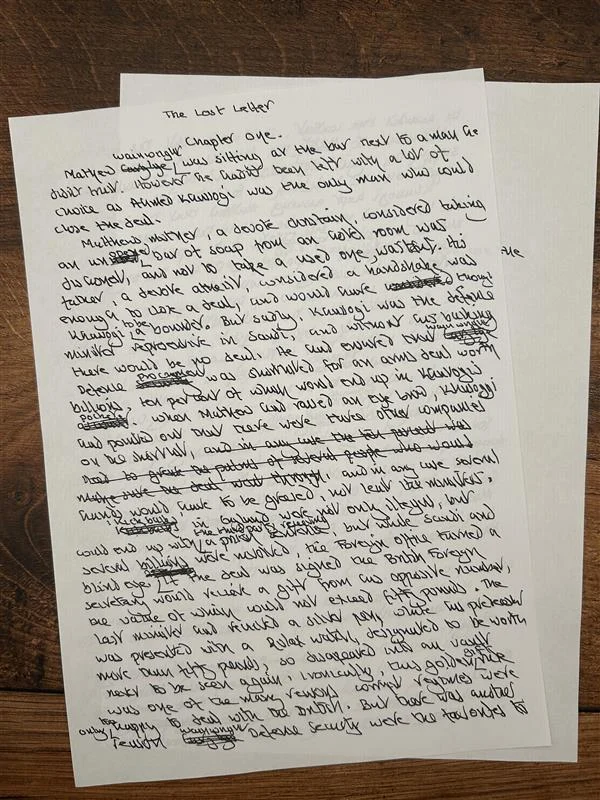 The Lost Letter
Chapter One.
Mathew Wainwright was sitting at the bar next to a man he
didn't trust. However he hadn't been left with a lot of
choice as Ahmed Khalogi was the only man who could
close the deal.
Matthew's mother, a devote christian, considered taking
an unopened bar of soap from an hotel room was
dishonest, and not to take a used one, wasteful. His
father, a devote atheist, considered a handshake was
enough to close a deal, and would have thought the
Khalogi to be a bounder. But sadly, Khalogi was the defense
minister representive in Saudi, and without his backing
there would be no deal. He had ensured that Wainwright
Defense was shortlisted for an arms deal worth
billions, ten per cent of which would end up in Khalogi's
pockets. When Mathew had raised an eye brow, Khaloggi
had pointed out that there were three other companies
on the shortlist, and in any case the ten percent was
used to grease the palms of several people who would
make sure the deal went through, and in any case several
hands would have to be greased, not least the minister's,
Kick backs in England were not only illegal, but
could end up with the third party receiving a prison sentence, but while Saudi and
several billions were involved, the Foreign office turned a
blind eye. If the deal was signed the British Foreign
secretary would receive a gift from his opposite number,
the value of which could not exceed fifty pounds. The
last minister had received a silver pen, while his predecessor
was presented with a Rolex watch, designated to be worth
more than fifty pounds, so disappeared into an vault
never to be seen again, ironically, this golden gift rule
was one of the many reasons corrupt regimes were
only too happy to deal with the British. But there was another
reason Wainwright Defense Security were the favorites to